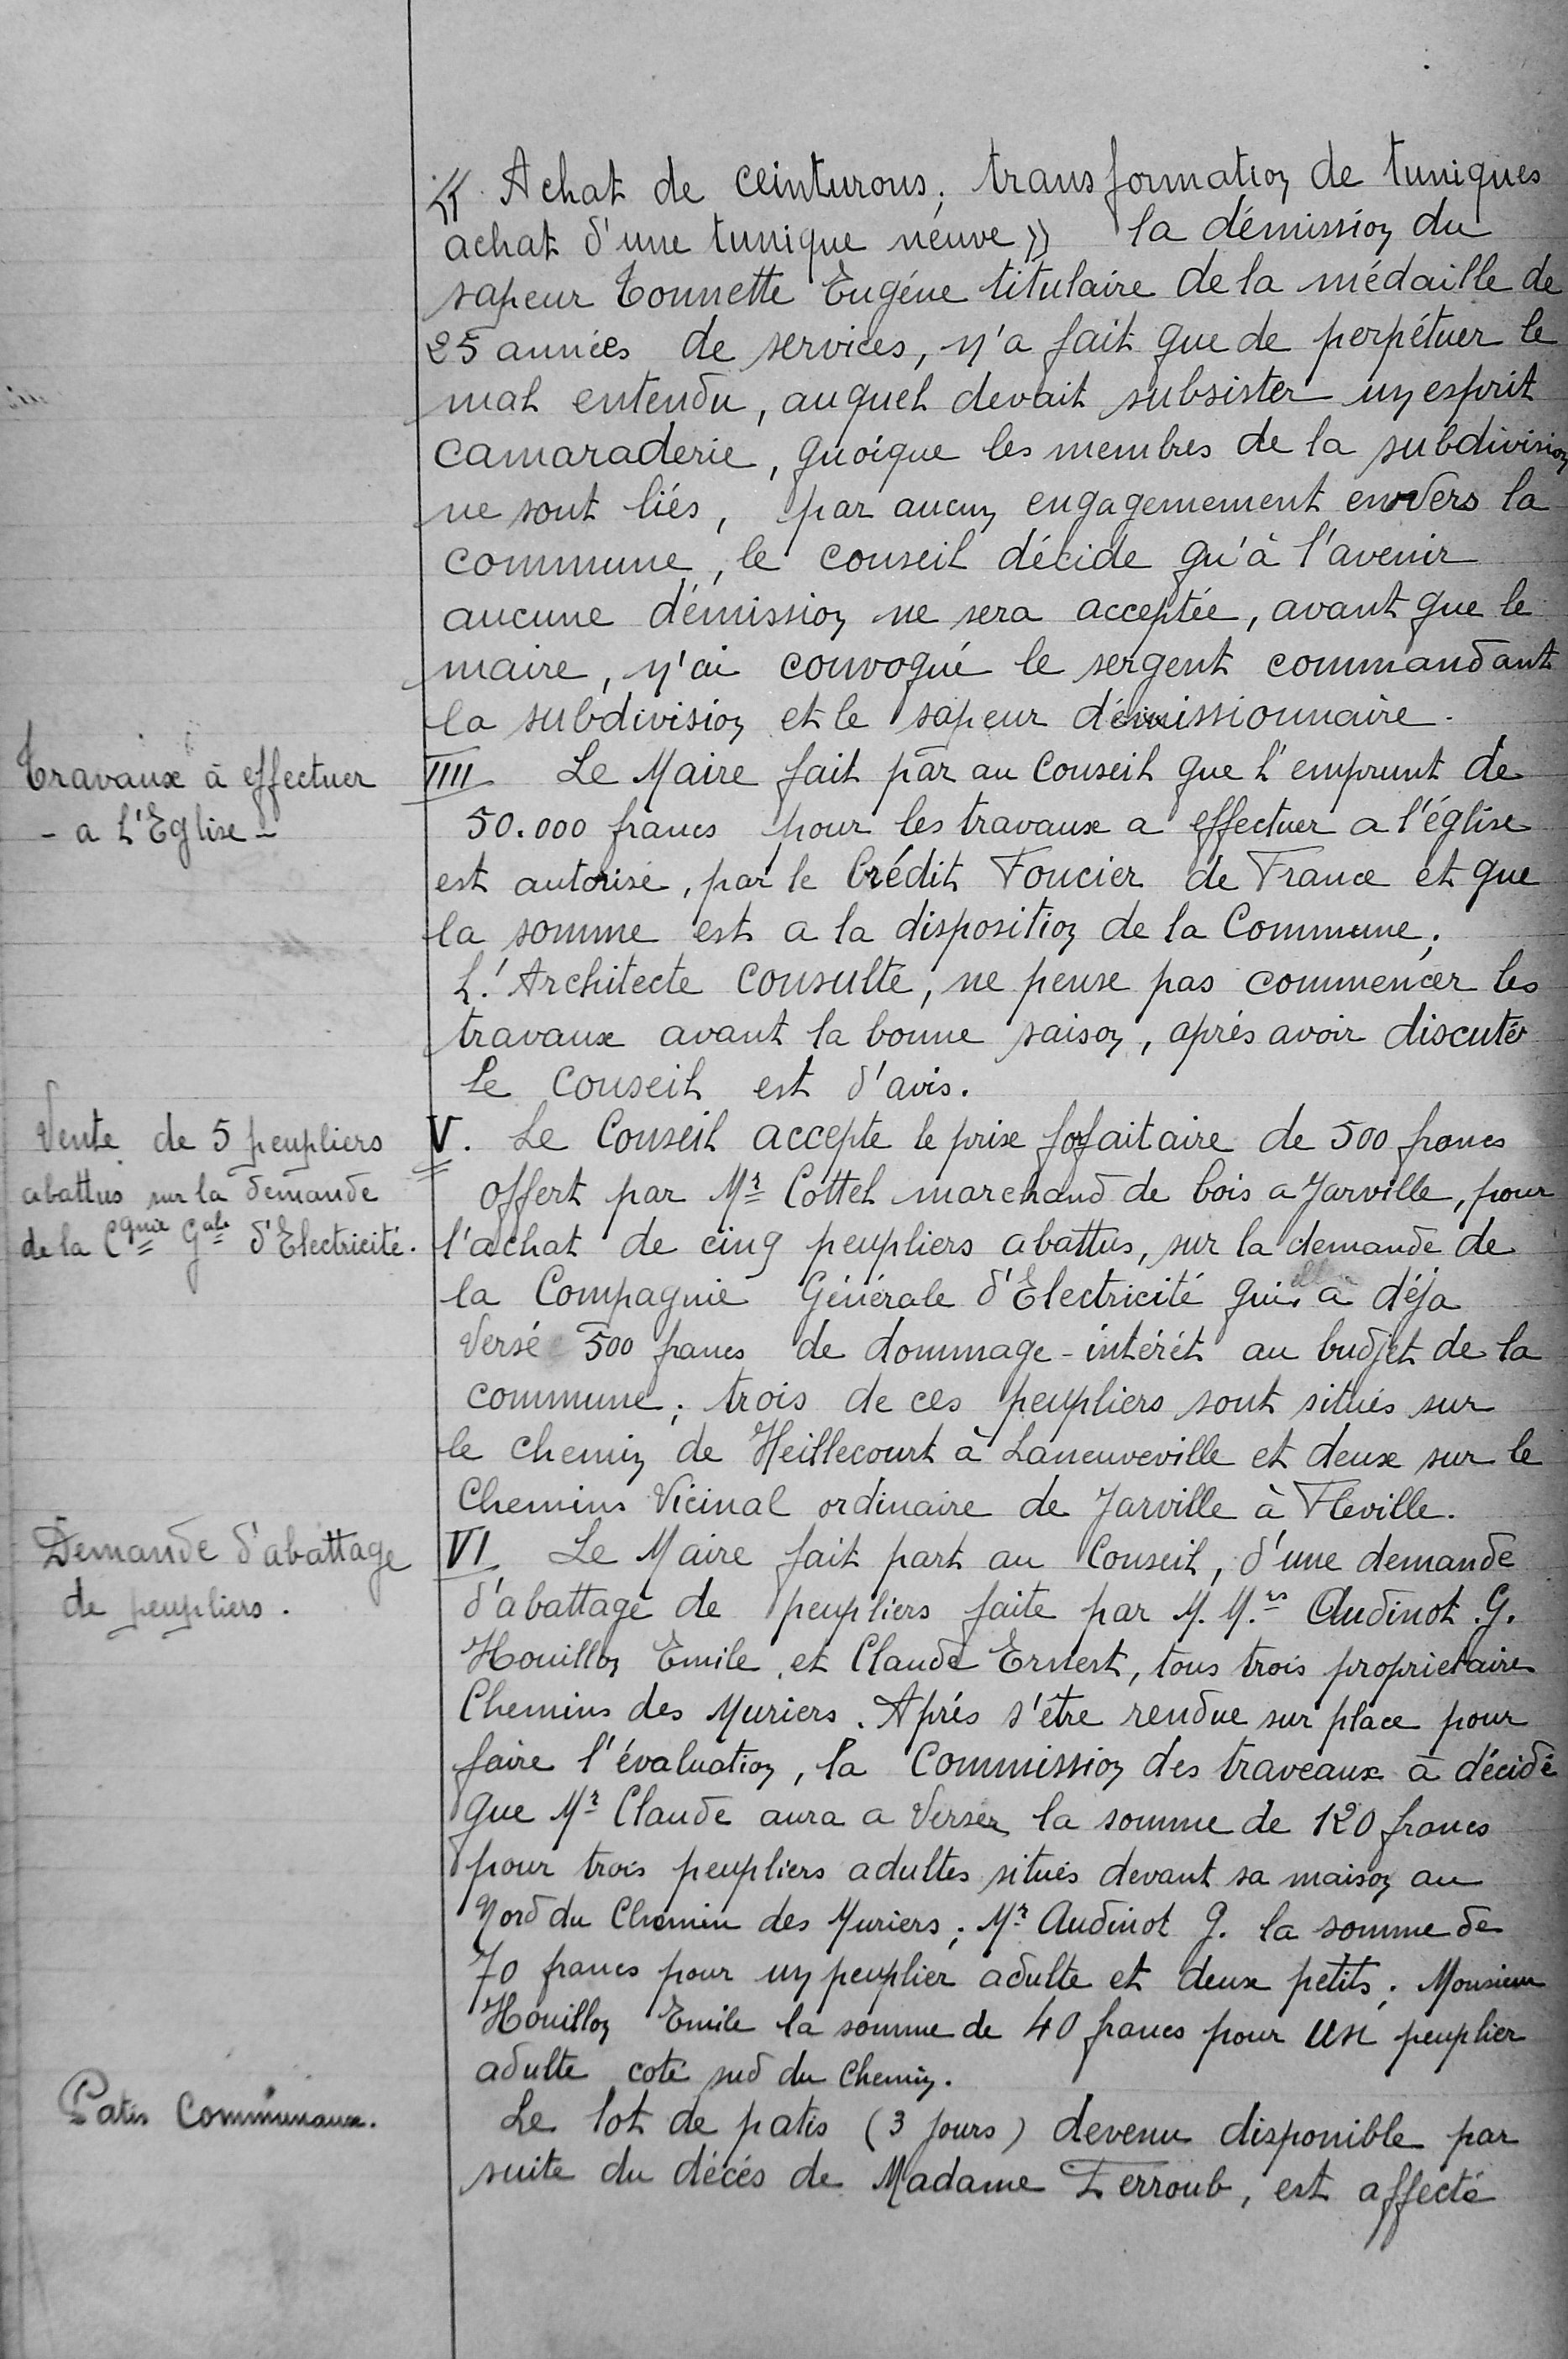 « Achat de ceinturons; transformation de tuniques
achat d'une tunique neuve » la démission du
sapeur Tonnette Eugéne titulaire de la médaille de
25 années de services, n'a fait que de perpétuer le
mal entendu, auquel devait subsister un esprit
camaraderie, quoique les membres de la subdivision
ne sont liés, par aucun engagemement envers la
commune, le conseil décide qu'à l'avenir
aucune démission ne sera acceptée, avant que le
maire, n'ai convoqué le sergent commandant
la subdivision et le sapeur démissionnaire.
Travaux à effectuer
- a L'Eglise -
IIII Le Maire fait par au Conseil que l'emprunt de
50.000 francs pour les travaux a effectuer a l'église
est autorisé, par le Crédit Foncier de France et que
la somme est a la disposition de la Commune;
L'Architecte consulté, ne pense pas commencer les
travaux avant la bonne saison, aprés avoir discuter
Le Conseil est d'avis.
Vente de 5 peupliers
abattus sur la demande
de la Cgnie Gale d'Electricité.
V. Le Conseil accepte le prix forfaitaire de 500 francs
offert par Mr Cottel marchand de bois a Jarville, pour
l'achat de cinq peupliers abattus, sur la demande de
la Compagnie Générale d'Electricité qui a déja
Versé 500 francs de dommage-intérét au budjet de la
commune; trois de ces peupliers sont situés sur
le chemin de Heillecourt à Laneuveville et deux sur le
Chemins Vicinal ordinaire de Jarville à Fleville.
Demande d'abattage
de peupliers.
VI Le Maire fait part au Conseil, d'une demande
d'abattage de peupliers faite par M. M.rs Audinot G.
Houillon Emile et Claude Ernest, tous trois proprietaires
Chemins des Muriers. Aprés s'être rendue sur place pour
faire l'évaluation, la Commission des traveaux à décidé
que Mr Claude aura a Verser la somme de 120 francs
pour trois peupliers adultes situés devant sa maison au
Nord du Chemin des Muriers; Mr Audinot G. la somme de
70 francs pour un peuplier adulte et deux petits; Monsieur
Houillon Emile la somme de 40 francs pour un peuplier
adulte coté sud du Chemin.
Patis Communaux.
Le lot de patis (3 jours) devenu disponible par
suite du décés de Madame Ferroub, est affecté